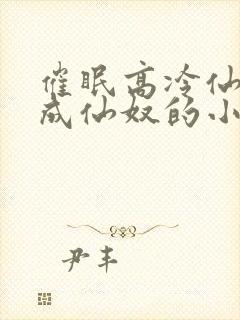 催眠高冷仙
成仙奴的小
尹丰